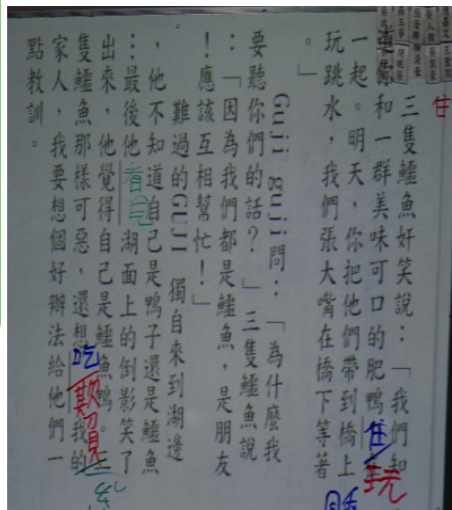 住
三隻鱷魚奸笑說:「我們知
你和一群美味可口的肥鴨住
一起。明天,你把他們帶到橋上
玩
玩跳水,我們張大嘴在橋下等著
。」
Guji guji問:「為什麼我
要聽你們的話?」三隻鱷魚說
:「因為我們都是鱷魚,是朋友
!應該互相幫忙!」
難過的GUJI 獨自來到湖邊
,他不知道自己是鴨子還是鱷魚
…最後他看見湖面上的倒影笑了
出來,他覺得自己是鱷魚鴨。三
隻鱷魚那樣可惡,還想我的
吃
欺負
家人,我要想個好辦法給他們一
點教訓。